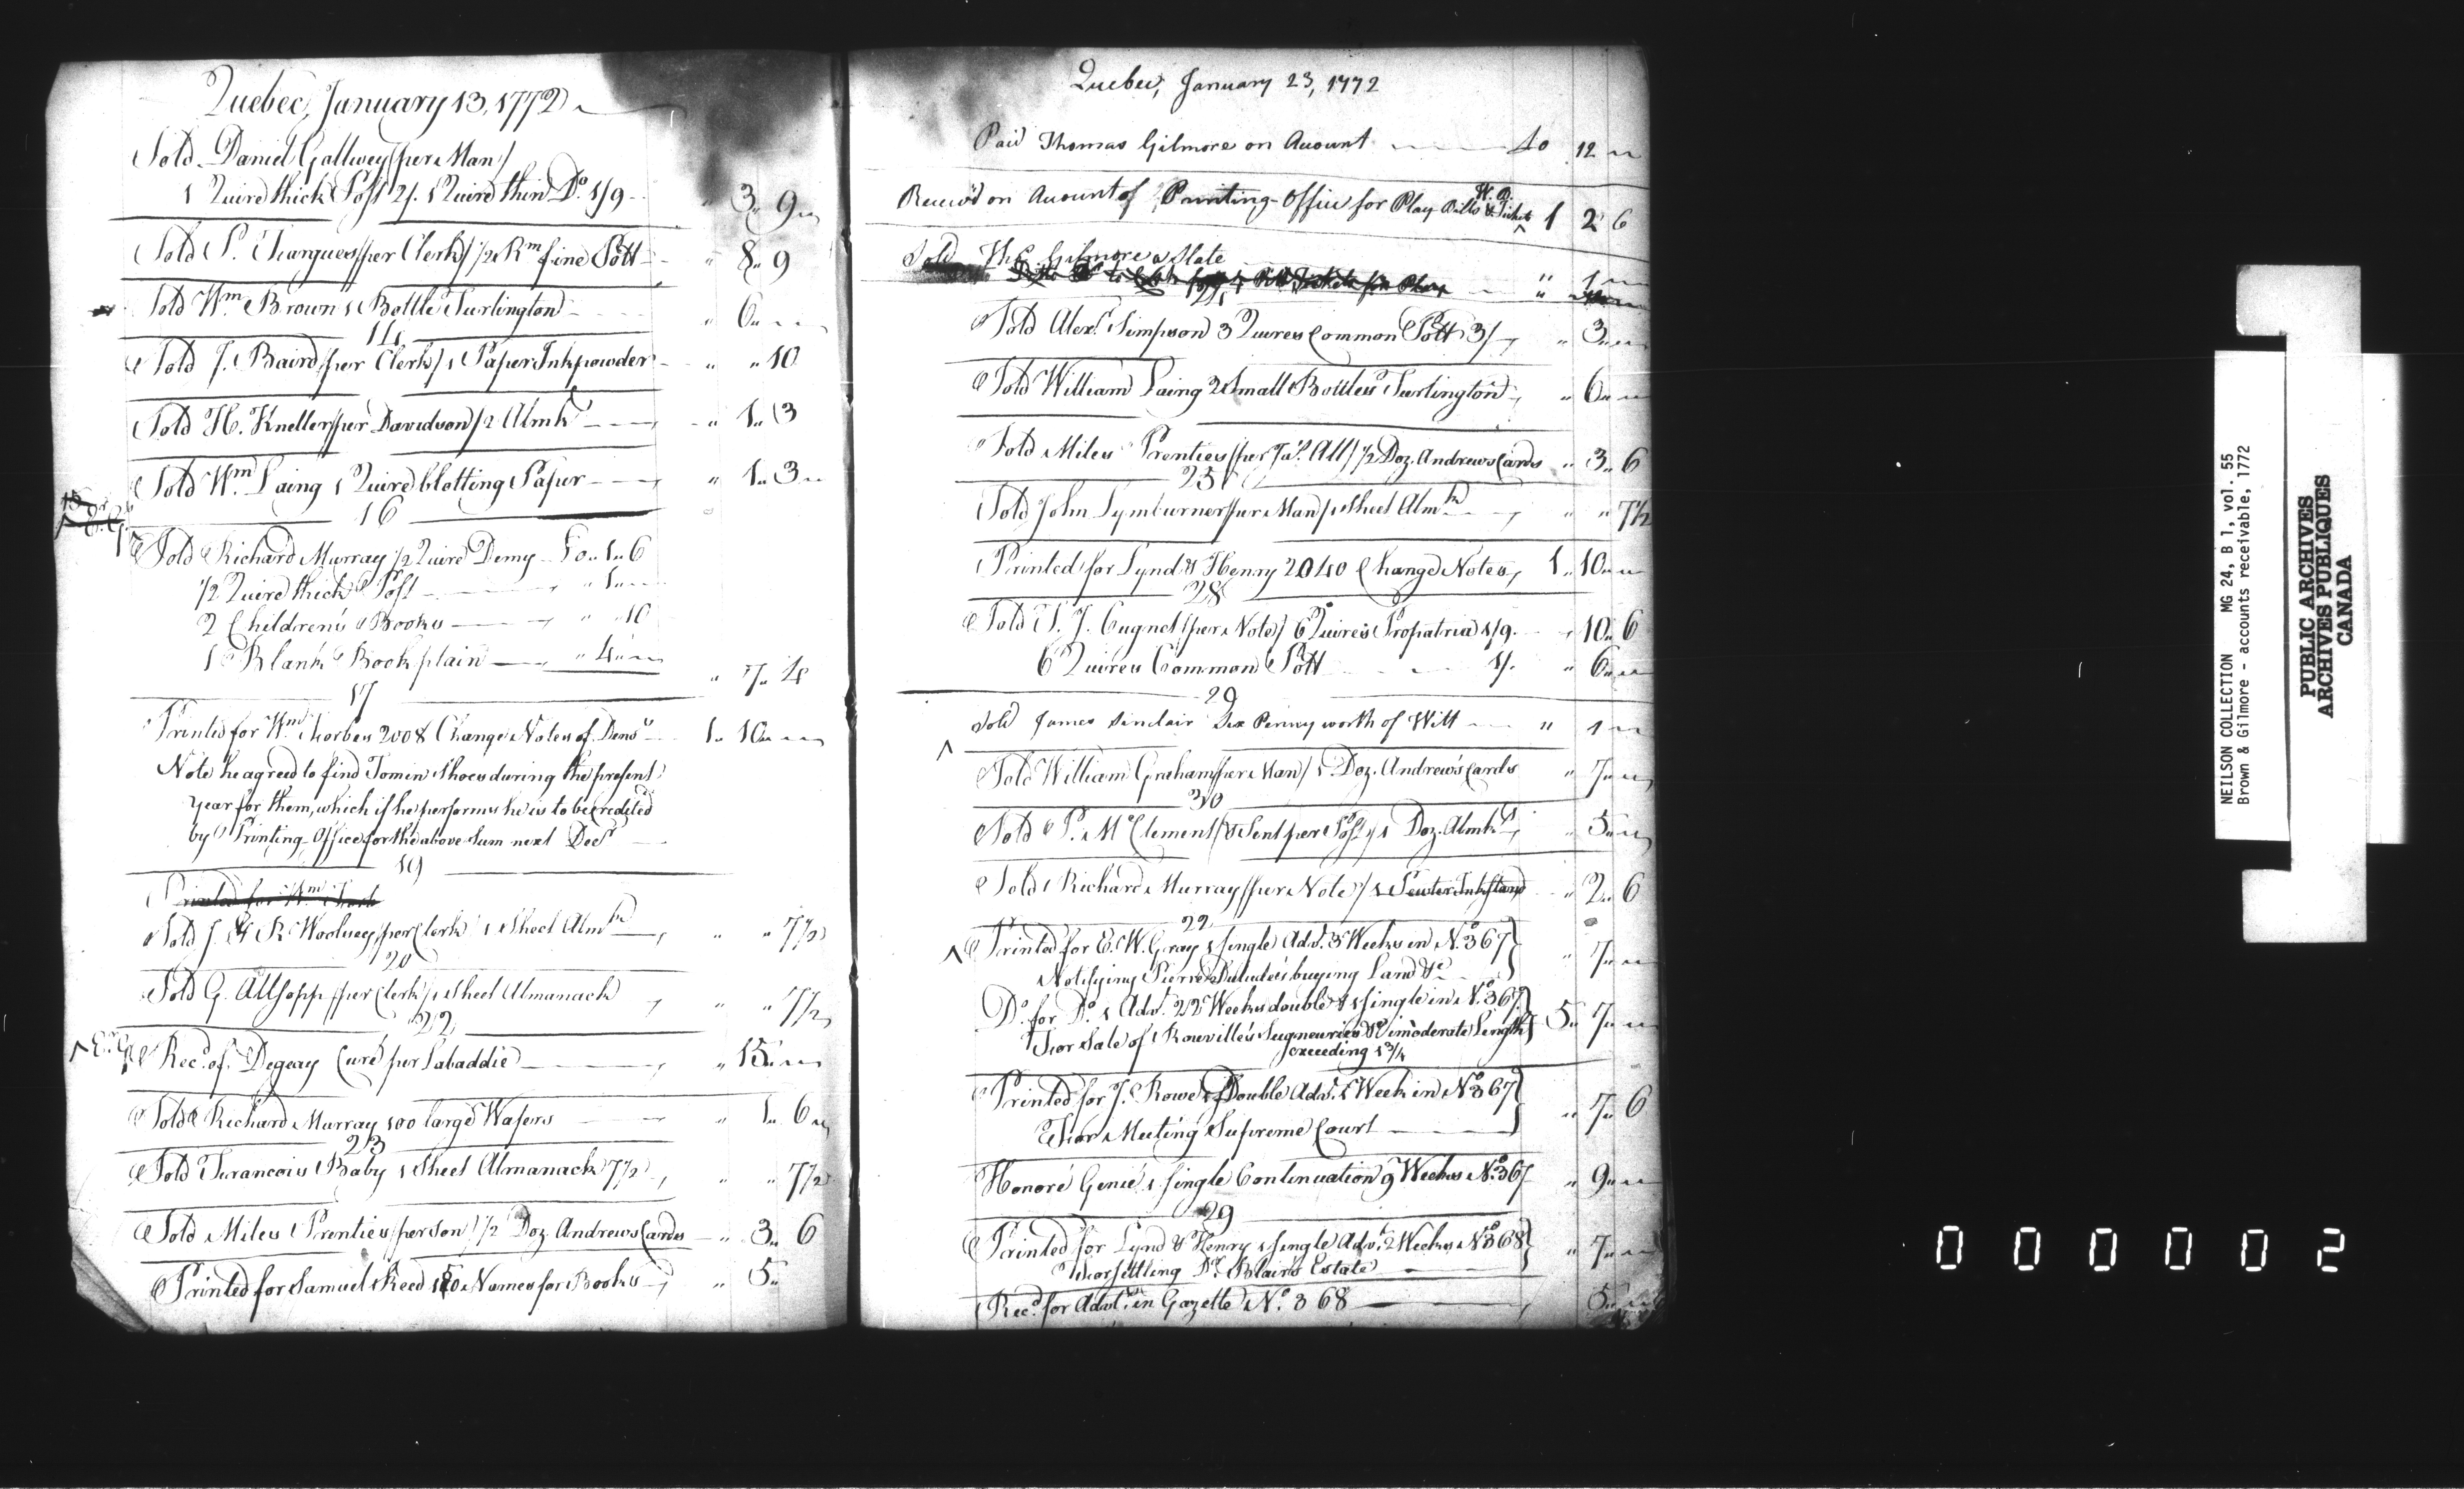 Quebec, January 13, 1772
Sold Daniel Gallwey /per Man/
1 Quire thick Post 2/. 1 Quire thin Do. 1/9 " 3 " 9
Sold P. Fargues /per Clerk/ 1/2 Rm fine Pott " 8 " 9
Sold Wm. Brown 1 Bottle Turlington " 6 "
14
Sold J. Baird /per Clerk/ 1 Paper Inkpowder " " 10
Sold H. Kneller /per Davidson/ 2 Almks " 1 " 3
Sold Wm. Laing 1 Quire blotting Paper " 1 " 3
16
Sold Richard Murray 1/2 Quire Demy £0 " 1 " 6
1/2 Quire thick Post " 1 "
2 Children's Books " " 10
1 Blank Book plain " 4 "
" 7 " 4
17
Printed for Wm. Forbes 2008 Change Notes of Dens. 1 " 10 "
Note he agreed to find Tom in Shoes during the present
Year for them, which if he performs he is to be credited
by Printing-Office for the above Sum next Decr
19
Printed for Wm
Sold J. & R Woolsey /per Clerk/ 1 Sheet Almk " " 7 1/2
20
Sold G. Allsopp /per Clerk/ 1 Sheet Almanack " " 7 1/2
22
Recd. of Degeay Curé per Labaddie " 15 "
Sold Richard Murray 100 large Wafers " 1 " 6
23
Sold Francois Baby 1 Sheet Almanack 7 1/2 " " 7 1/2
Sold Miles Prenties /per Son/ 1/2 Doz. Andrews Cards " 3 " 6
Printed for Samuel Reed Names for Books " 5 "
Quebec, January 23, 1772
Paid Thomas Gilmore on Account 40 12
Receiv'd on Account of Printing-Office for Play Bills & Tickets W. B. 1 2 6
Sold Gilmore a Slate " 1
Sold Alexr. Simpson 3 Quires Common Pott 3/ " 3 "
Sold William Laing 2 Small Bottles Turlington " 6 "
Sold Miles Prenties /per Jas. All/ 1/2 Doz. Andrews Cards " 3 " 6
25
Sold John Lymburner /per Man/ 1 Sheet Almk " " 7 1/2
Printed for Lynd & Henry 2040 Change Notes 1 " 10 "
28
Sold F. J. Cugnet /per Note/ 6 Quires Propatria 1/9 " 10 " 6
6 Quires Common Pott 1/. " 6 "
29
Sold James Sinclair Six Penny worth of Witt " 1
Sold William Graham /per Man/ 1 Doz. Andrew's Cards " 7 "
30
Sold P. McClement /& Sent per Post/ 1 Doz. Almks " 5 "
Sold Richard Murray /per Note/ 1 Pewter Inkstand " 2 " 6
22
Printed for E. W. Gray 1 single Advt. 3 Weeks in No. 367 " 7 "
Notifying Pierre Dulude's buying Land &c
Do. for Do. 1 Advt. 22 Weeks double & 1 single in No. 367 5 " 7 "
For Sale of Rouville's Seigneuries &c immoderate Length
exceeding 1 3/4
Printed for J. Rowe 1 Double Advt. 1 Week in No. 367 " 7 " 6
For Meeting Supreme Court
Honoré Genié 1 single Continuation 9 Weeks No. 367 " 9 "
29
Printed for Lynd & Henry 1 single Advt. 2 Weeks No. 368 " 7 "
For settling Dr. Blair's Estate
Recd. for Advt. in Gazette No. 368 5 "
NEILSON COLLECTION MG 24, B 1, vol. 55
Brown & Gilmore - accounts receivable, 1772
PUBLIC ARCHIVES
ARCHIVES PUBLIQUES
CANADA
000002